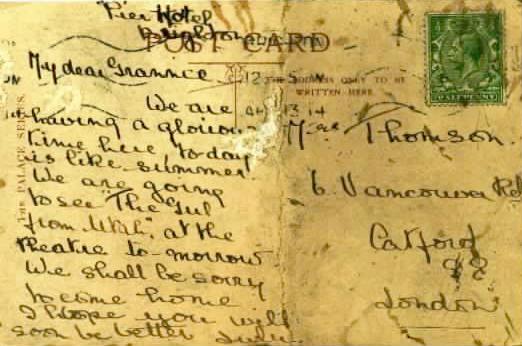 Pier Hotel
Brighton
POST CARD
THE ADDRESS ONLY TO BE
WRITTEN HERE
THE PALACE SERIES.
HALFPENNY
My dear Grannie
We are
having a glorious
time here to day
is like summer
We are going
to see "The Gul
from Utah", at the
theatre to-morrow
We shall be sorry
to come home
I hope you will
soon be better
Thomson.
6. Vancouver Rd
Catford
London